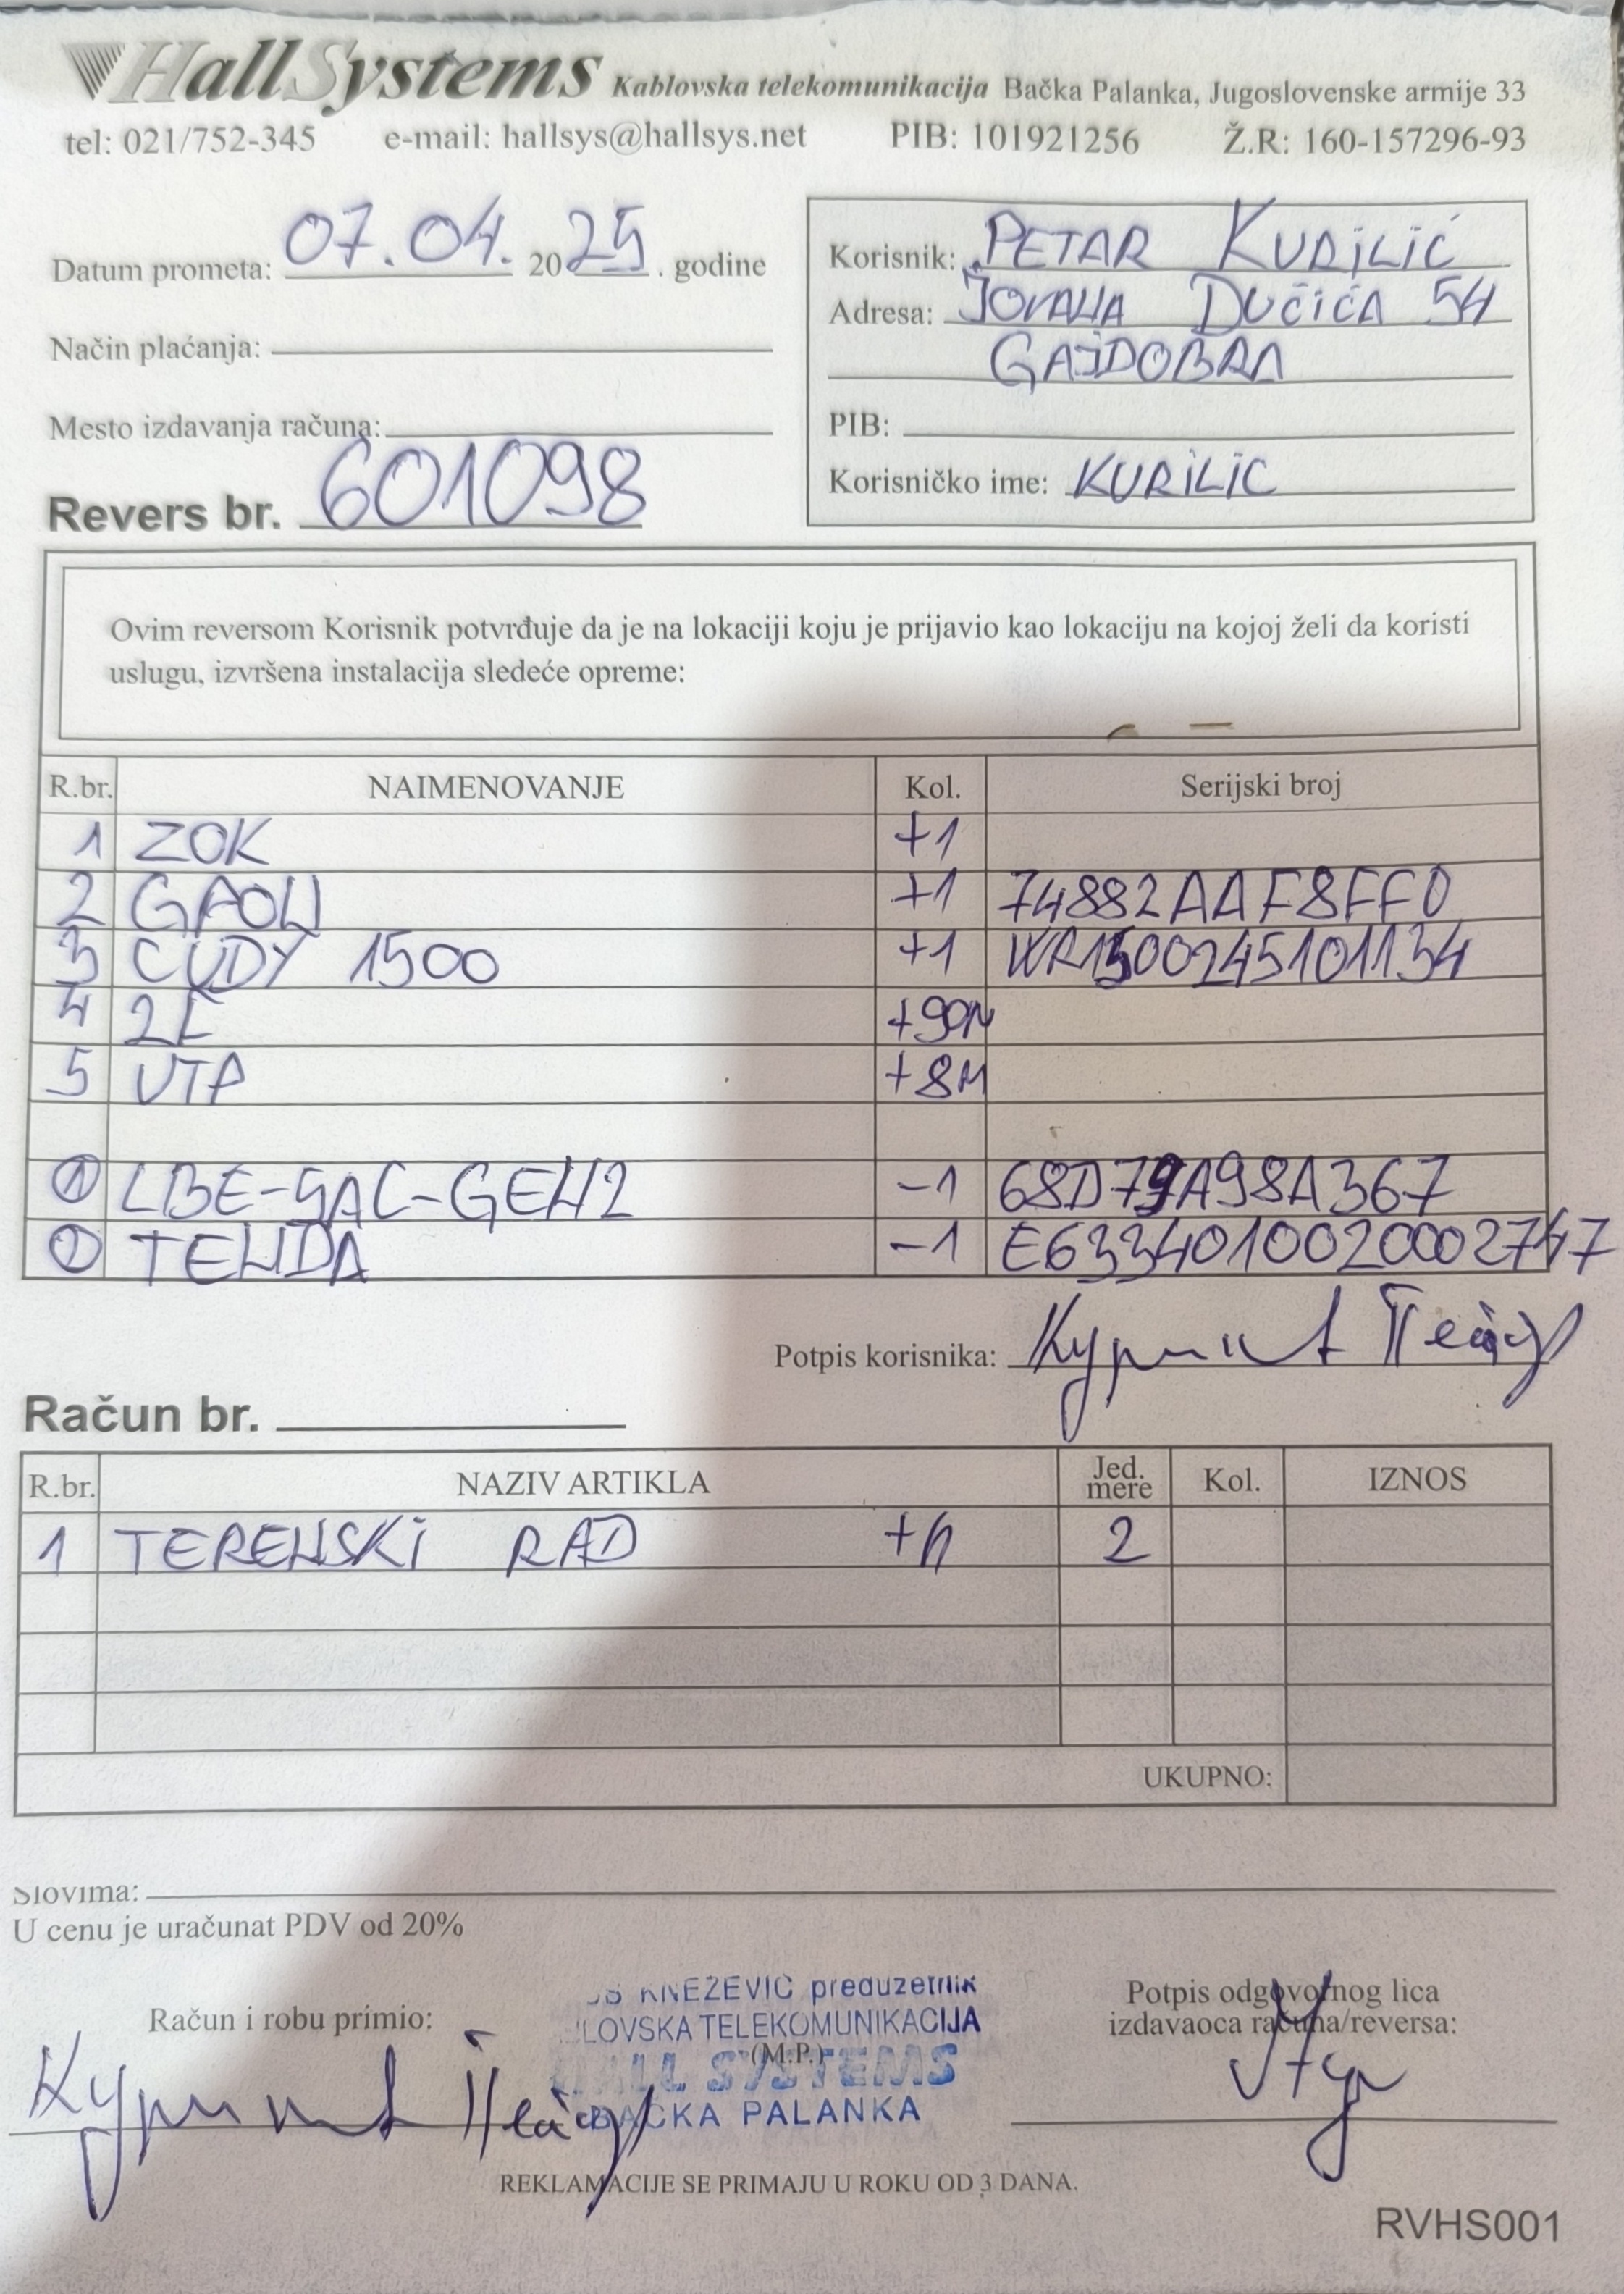 HallSystems Kablovska telekomunikacija Bačka Palanka, Jugoslovenske armije 33
tel: 021/752-345 e-mail: hallsys@hallsys.net PIB: 101921256 Ž.R: 160-157296-93
Datum prometa: 07.04. 2025. godine
Način plaćanja:
Mesto izdavanja računa:
Revers br. 601098
Korisnik: PETAR KURILIĆ
Adresa: JOVANA DUČIĆA 54
GAJDOBRA
PIB:
Korisničko ime: KURILIC
Ovim reversom Korisnik potvrđuje da je na lokaciji koju je prijavio kao lokaciju na kojoj želi da koristi
uslugu, izvršena instalacija sledeće opreme:
R.br. NAIMENOVANJE Kol. Serijski broj
1 ZOK +1
2 GPON +1 74882AAF8FF0
3 CUDY 1500 +1 WR1500245101134
4 2L +90M
5 UTP +8M
1 LBE-5AC-GEN2 -1 68D79A98A367
2 TENDA -1 E6334010020002747
Potpis korisnika: Курилић Петар
Račun br.
R.br. NAZIV ARTIKLA Jed. mere Kol. IZNOS
1 TERENSKI RAD 2
UKUPNO:
Slovima:
U cenu je uračunat PDV od 20%
Račun i robu primio:
Курилић Петар
KNEŽEVIĆ preduzetnik
LOVSKA TELEKOMUNIKACIJA
(M.P.)
HALL SYSTEMS
BAČKA PALANKA
Potpis odgovornog lica
izdavaoca računa/reversa:
REKLAMACIJE SE PRIMAJU U ROKU OD 3 DANA.
RVHS001